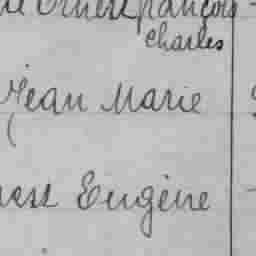 Ernest François
Charles
Jean Marie
Eugène